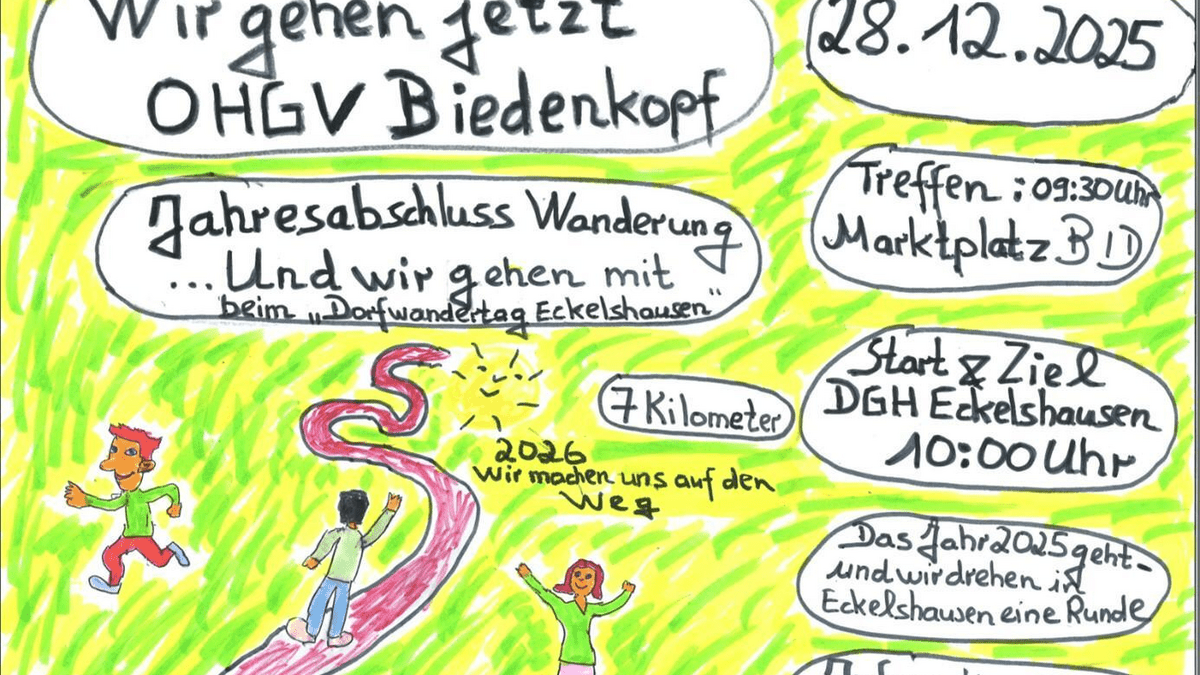 Wir gehen jetzt
OHGV Biedenkopf
28.12.2025
Jahresabschluss Wanderung
...Und wir gehen mit
beim „Dorfwandertag Eckelshausen"
Treffen : 09:30 Uhr
Marktplatz BID
7 Kilometer
Start & Ziel
DGH Eckelshausen
10:00 Uhr
2026
Wir machen uns auf den
Weg
Das Jahr 2025 geht-
und wir drehen in
Eckelshausen eine Runde